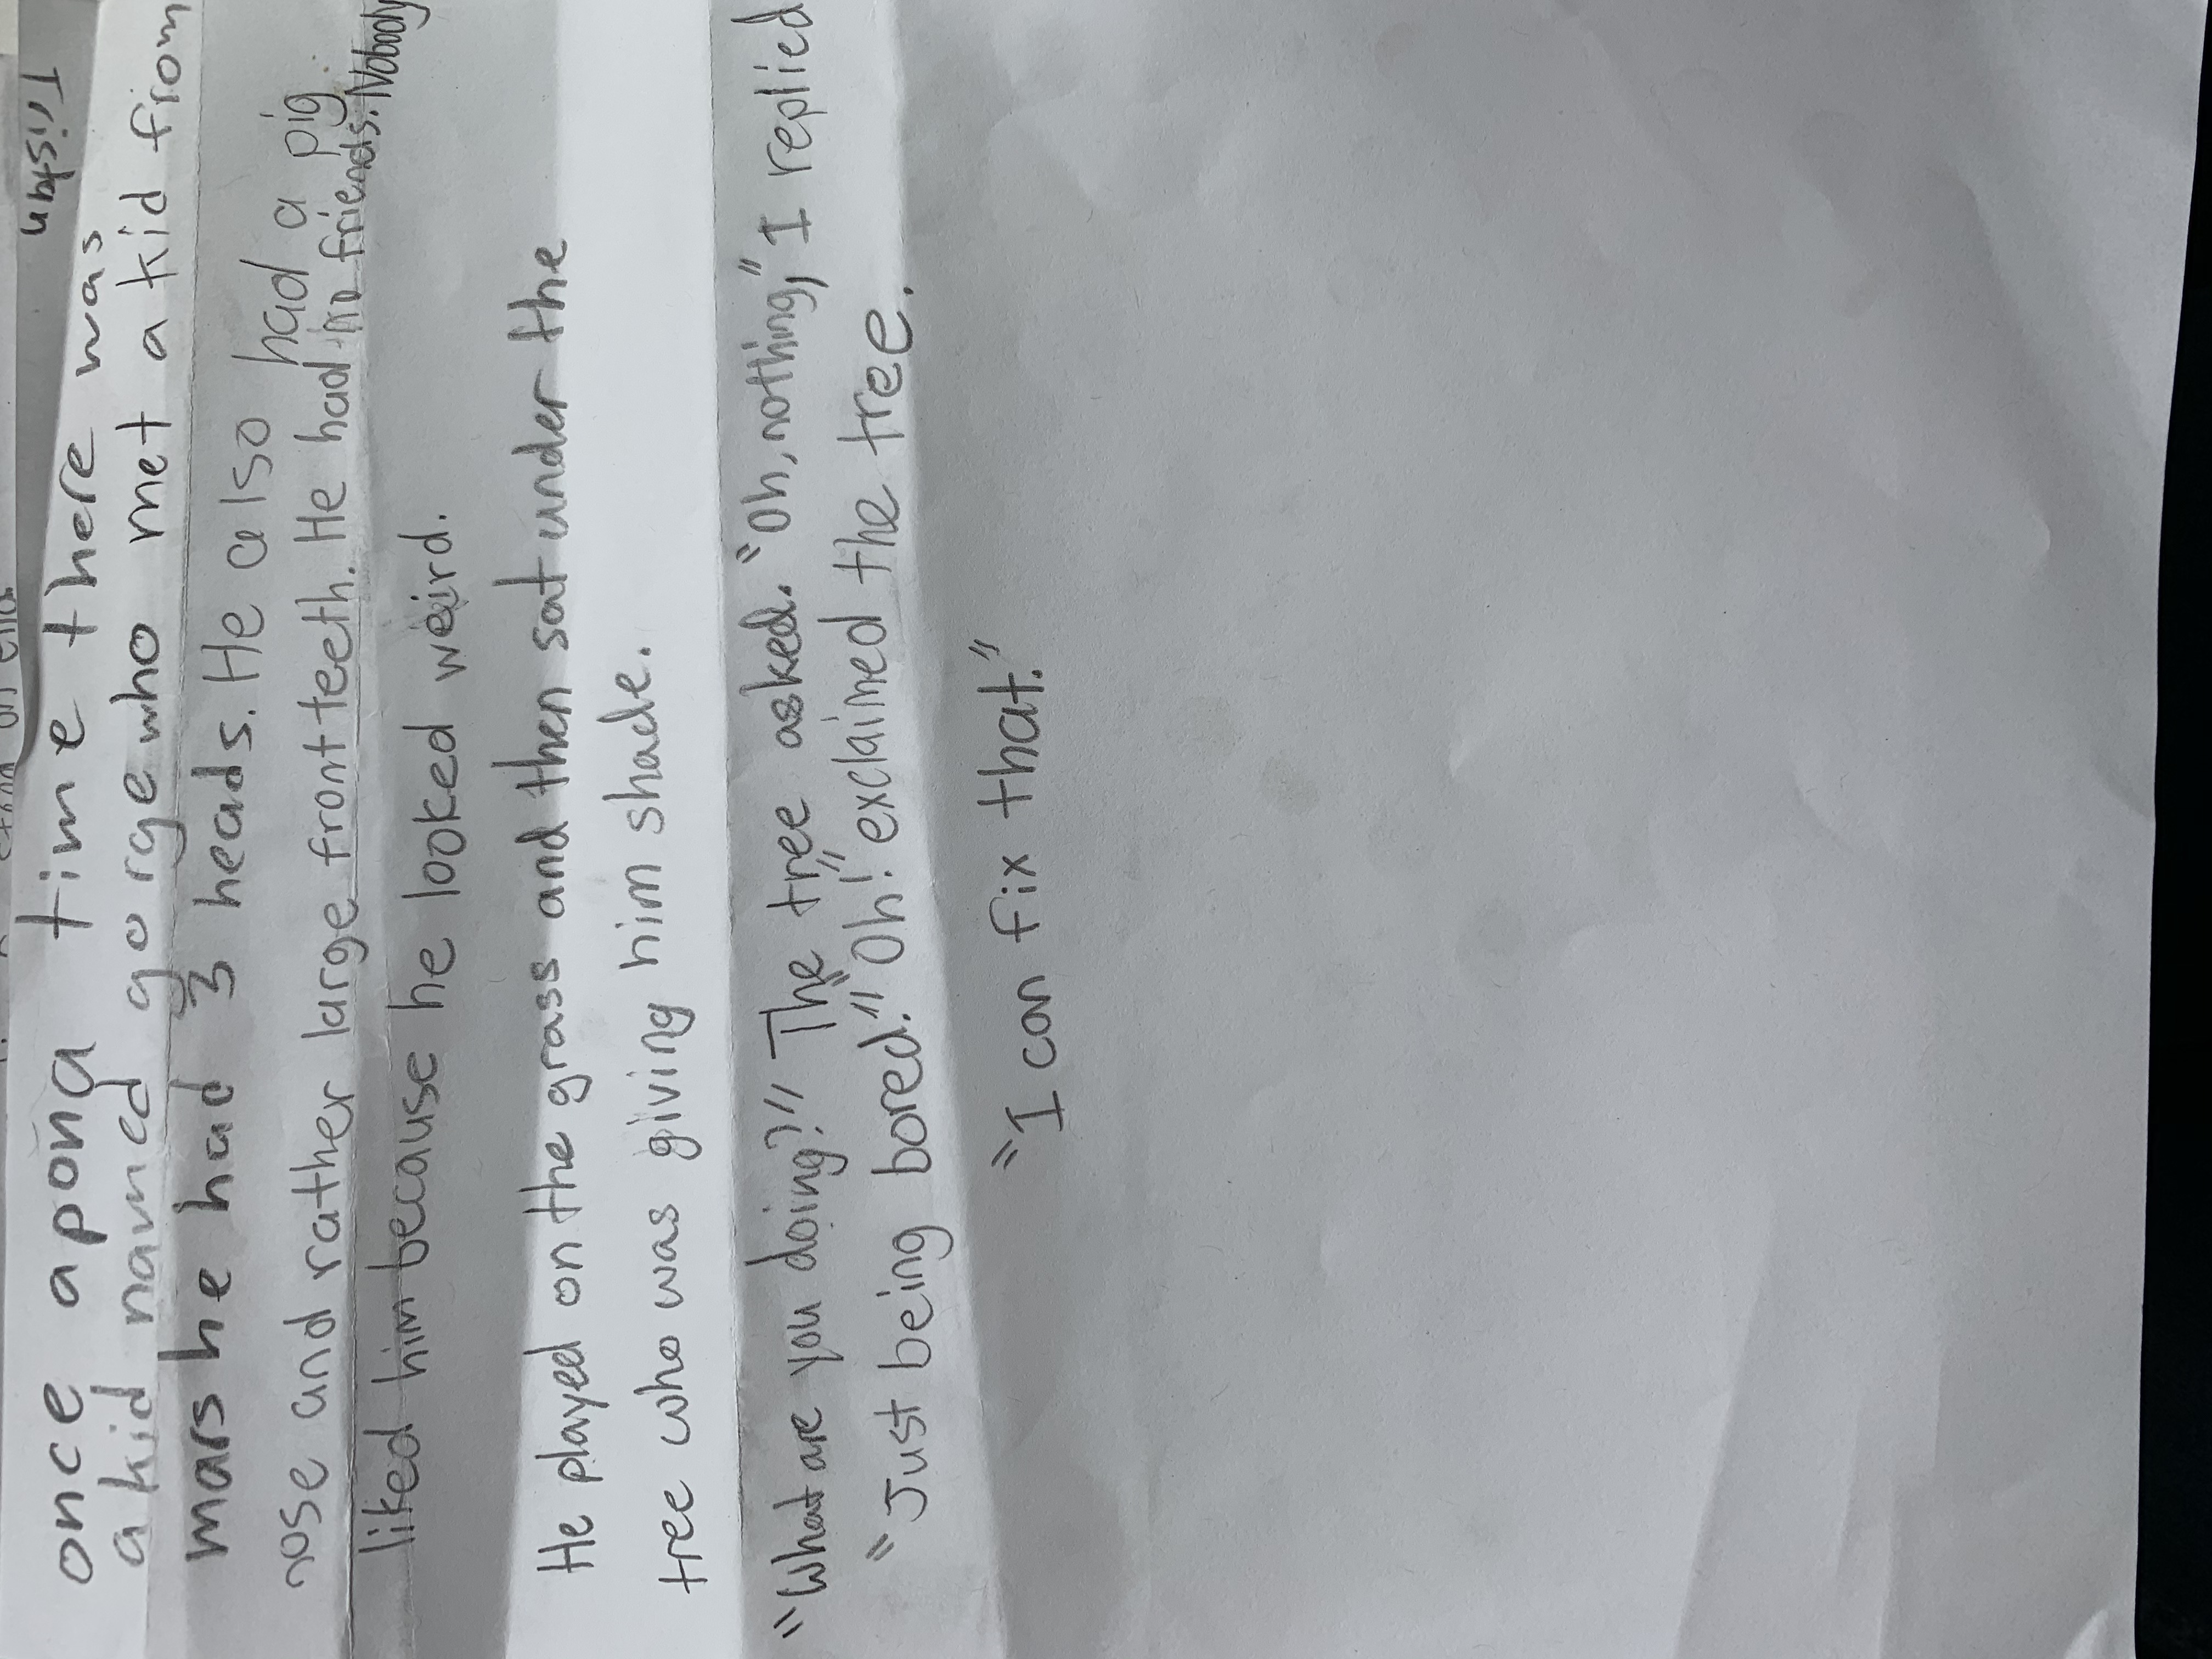 Tristan
once apona time there was
a kid named gorge who met a kid from
mars he had 3 heads. He also had a pig
nose and rather large front teeth. He had no friends. Nobody
liked him because he looked weird.
He played on the grass and then sat under the
tree who was giving him shade.
"What are you doing?" The tree asked. "Oh, nothing," I replied
"Just being bored." "Oh!" exclaimed the tree.
"I can fix that."